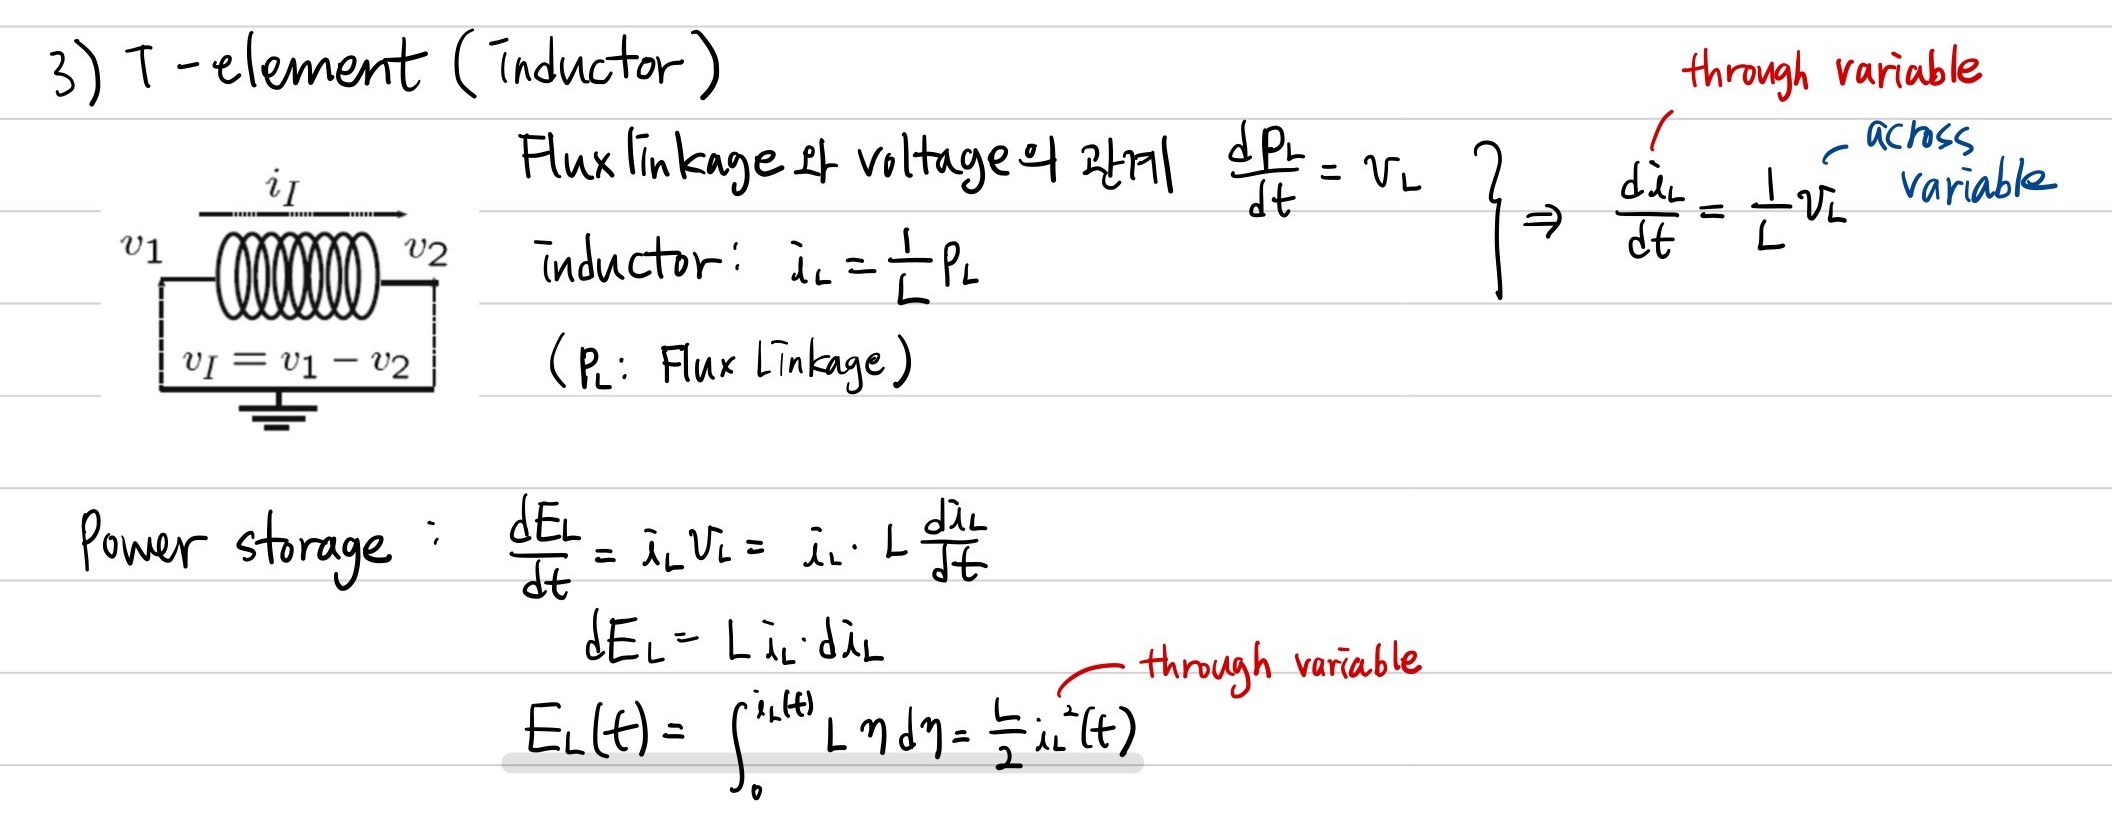 3) T-element (inductor)
through variable
across variable
Flux linkage와 voltage의 관계 dP_L/dt = v_L } ⇒ di_L/dt = 1/L v_L
inductor: i_L = 1/L P_L
(P_L: Flux Linkage)
i_I
v_1 v_2
v_I = v_1 − v_2
Power storage: dE_L/dt = i_L v_L = i_L · L di_L/dt
dE_L = L i_L · di_L
through variable
E_L(t) = ∫_0^{i_L(t)} L η dη = L/2 i_L^2(t)